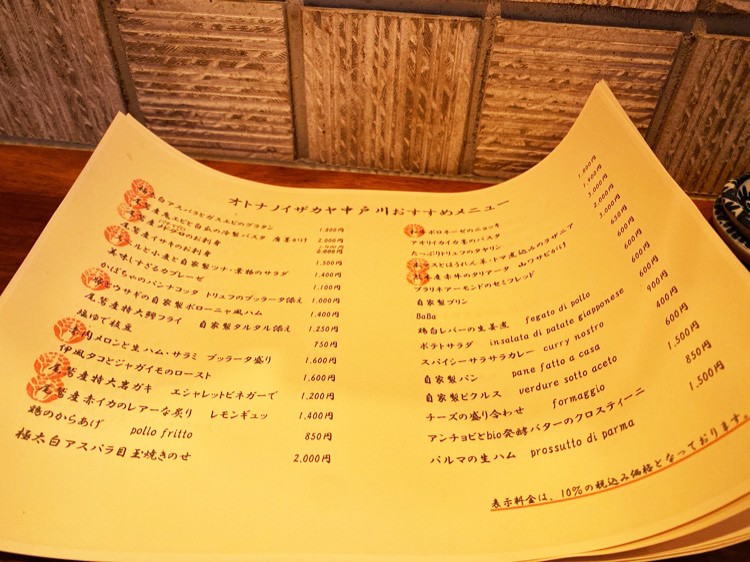 オトナノイザカヤ中戸川おすすめメニュー
白アスパラとガスエビのグラタン 1,800円
エビと白瓜の冷製パスタ 2,000円
のお刺身
尾鷲産イサキのお刺身 1,500円
と小麦と自家製ツナ・素麺のサラダ 1,400円
美味しすぎるカプレーゼ 1,100円
かぼちゃのパンナコッタ トリュフのブッラータ添え 1,000円
ウサギの自家製ボローニャ風ハム 1,400円
尾鷲産特大鯵フライ 自家製タルタル添え 1,250円
塩ゆで枝豆 750円
肉メロンと生ハム・サラミ ブッラータ盛り 1,600円
伊風タコとジャガイモのロースト 1,600円
尾鷲産特大岩ガキ エシャレットビネガーで 1,200円
尾鷲産赤イカのレアーな炙り レモンギュッ 1,400円
鶏のからあげ pollo fritto 850円
極太白アスパラ目玉焼きのせ 2,000円
ボロネーゼのニョッキ 1,800円
アオリイカイカ墨のパスタ 1,900円
たっぷりトリュフのタヤリン 3,000円
とほうれん草・トマ煮込みのラザニア 2,000円
産赤牛のタリアータ 山ワサビ 3,000円
プラリネアーモンドのセミフレッド 650円
自家製プリン 600円
BaBa 600円
鶏白レバーの生姜煮 fegato di pollo 600円
ポテトサラダ insalata di patate giapponese 600円
スパイシーサラサラカレー curry nostro 900円
自家製パン pane fatto a casa 400円
自家製ピクルス verdure sotto aceto 600円
チーズの盛り合わせ formaggio 1,500円
アンチョビとbio発酵バターのクロスティーニ 850円
パルマの生ハム prossutto di parma 1,500円
表示料金は、10%の税込み価格となっております。